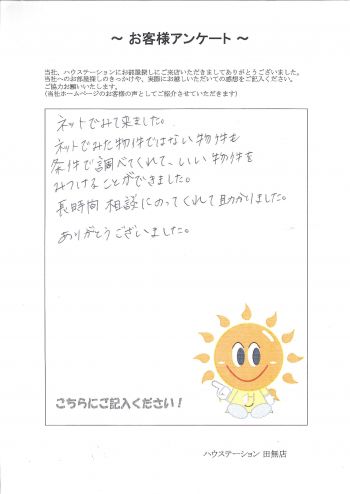 ～ お客様アンケート ～
当社、ハウステーションにお部屋探しにご来店いただきましてありがとうございました。
当社へのお部屋探しのきっかけや、実際にお越しいただいての感想をご記入ください。
ご協力お願いいたします。
(当社ホームページのお客様の声としてご紹介させていただきます)
ネットでみて来ました。
ネットでみた物件ではない物件も
条件で調べてくれて、いい物件を
みつけることができました。
長時間 相談にのってくれて助かりました。
ありがとうございました。
こちらにご記入ください！
ハウステーション 田無店